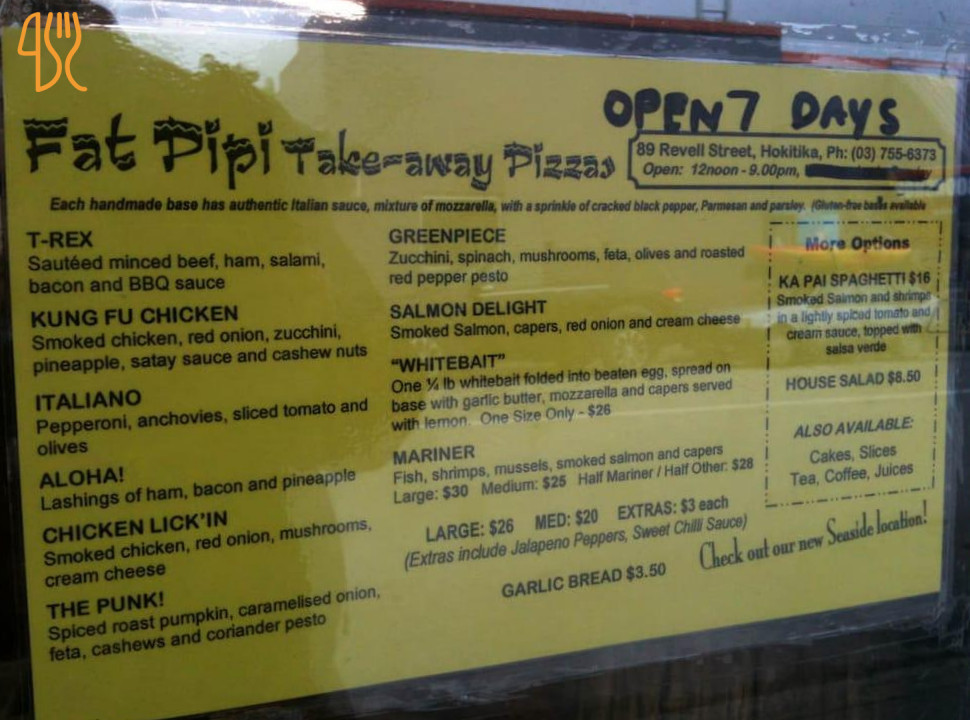 OPEN 7 DAYS
Fat Pipi Take-away Pizzas
89 Revell Street, Hokitika, Ph: (03) 755-6373
Open: 12noon - 9.00pm,
Each handmade base has authentic Italian sauce, mixture of mozzarella, with a sprinkle of cracked black pepper, Parmesan and parsley. (Gluten-free bases available
T-REX
Sautéed minced beef, ham, salami,
bacon and BBQ sauce
KUNG FU CHICKEN
Smoked chicken, red onion, zucchini,
pineapple, satay sauce and cashew nuts
ITALIANO
Pepperoni, anchovies, sliced tomato and
olives
ALOHA!
Lashings of ham, bacon and pineapple
CHICKEN LICK'IN
Smoked chicken, red onion, mushrooms,
cream cheese
THE PUNK!
Spiced roast pumpkin, caramelised onion,
feta, cashews and coriander pesto
GREENPIECE
Zucchini, spinach, mushrooms, feta, olives and roasted
red pepper pesto
SALMON DELIGHT
Smoked Salmon, capers, red onion and cream cheese
"WHITEBAIT"
One ¼ lb whitebait folded into beaten egg, spread on
base with garlic butter, mozzarella and capers served
with lemon. One Size Only - $26
MARINER
Fish, shrimps, mussels, smoked salmon and capers
Large: $30 Medium: $25 Half Mariner / Half Other: $28
LARGE: $26 MED: $20 EXTRAS: $3 each
(Extras include Jalapeno Peppers, Sweet Chilli Sauce)
GARLIC BREAD $3.50
More Options
KA PAI SPAGHETTI $16
Smoked Salmon and shrimps
in a lightly spiced tomato and
cream sauce, topped with
salsa verde
HOUSE SALAD $8.50
ALSO AVAILABLE:
Cakes, Slices
Tea, Coffee, Juices
Check out our new Seaside location!